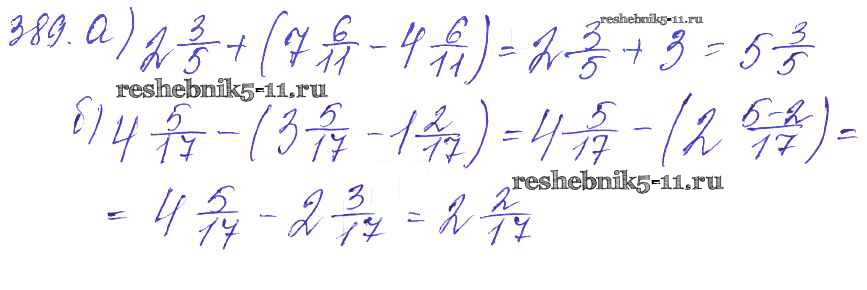 389. а) 2 3/5 + (7 6/11 - 4 6/11) = 2 3/5 + 3 = 5 3/5
reshebnik5-11.ru
reshebnik5-11.ru
б) 4 5/17 - (3 5/17 - 1 2/17) = 4 5/17 - (2 5-2/17) =
reshebnik5-11.ru
= 4 5/17 - 2 3/17 = 2 2/17